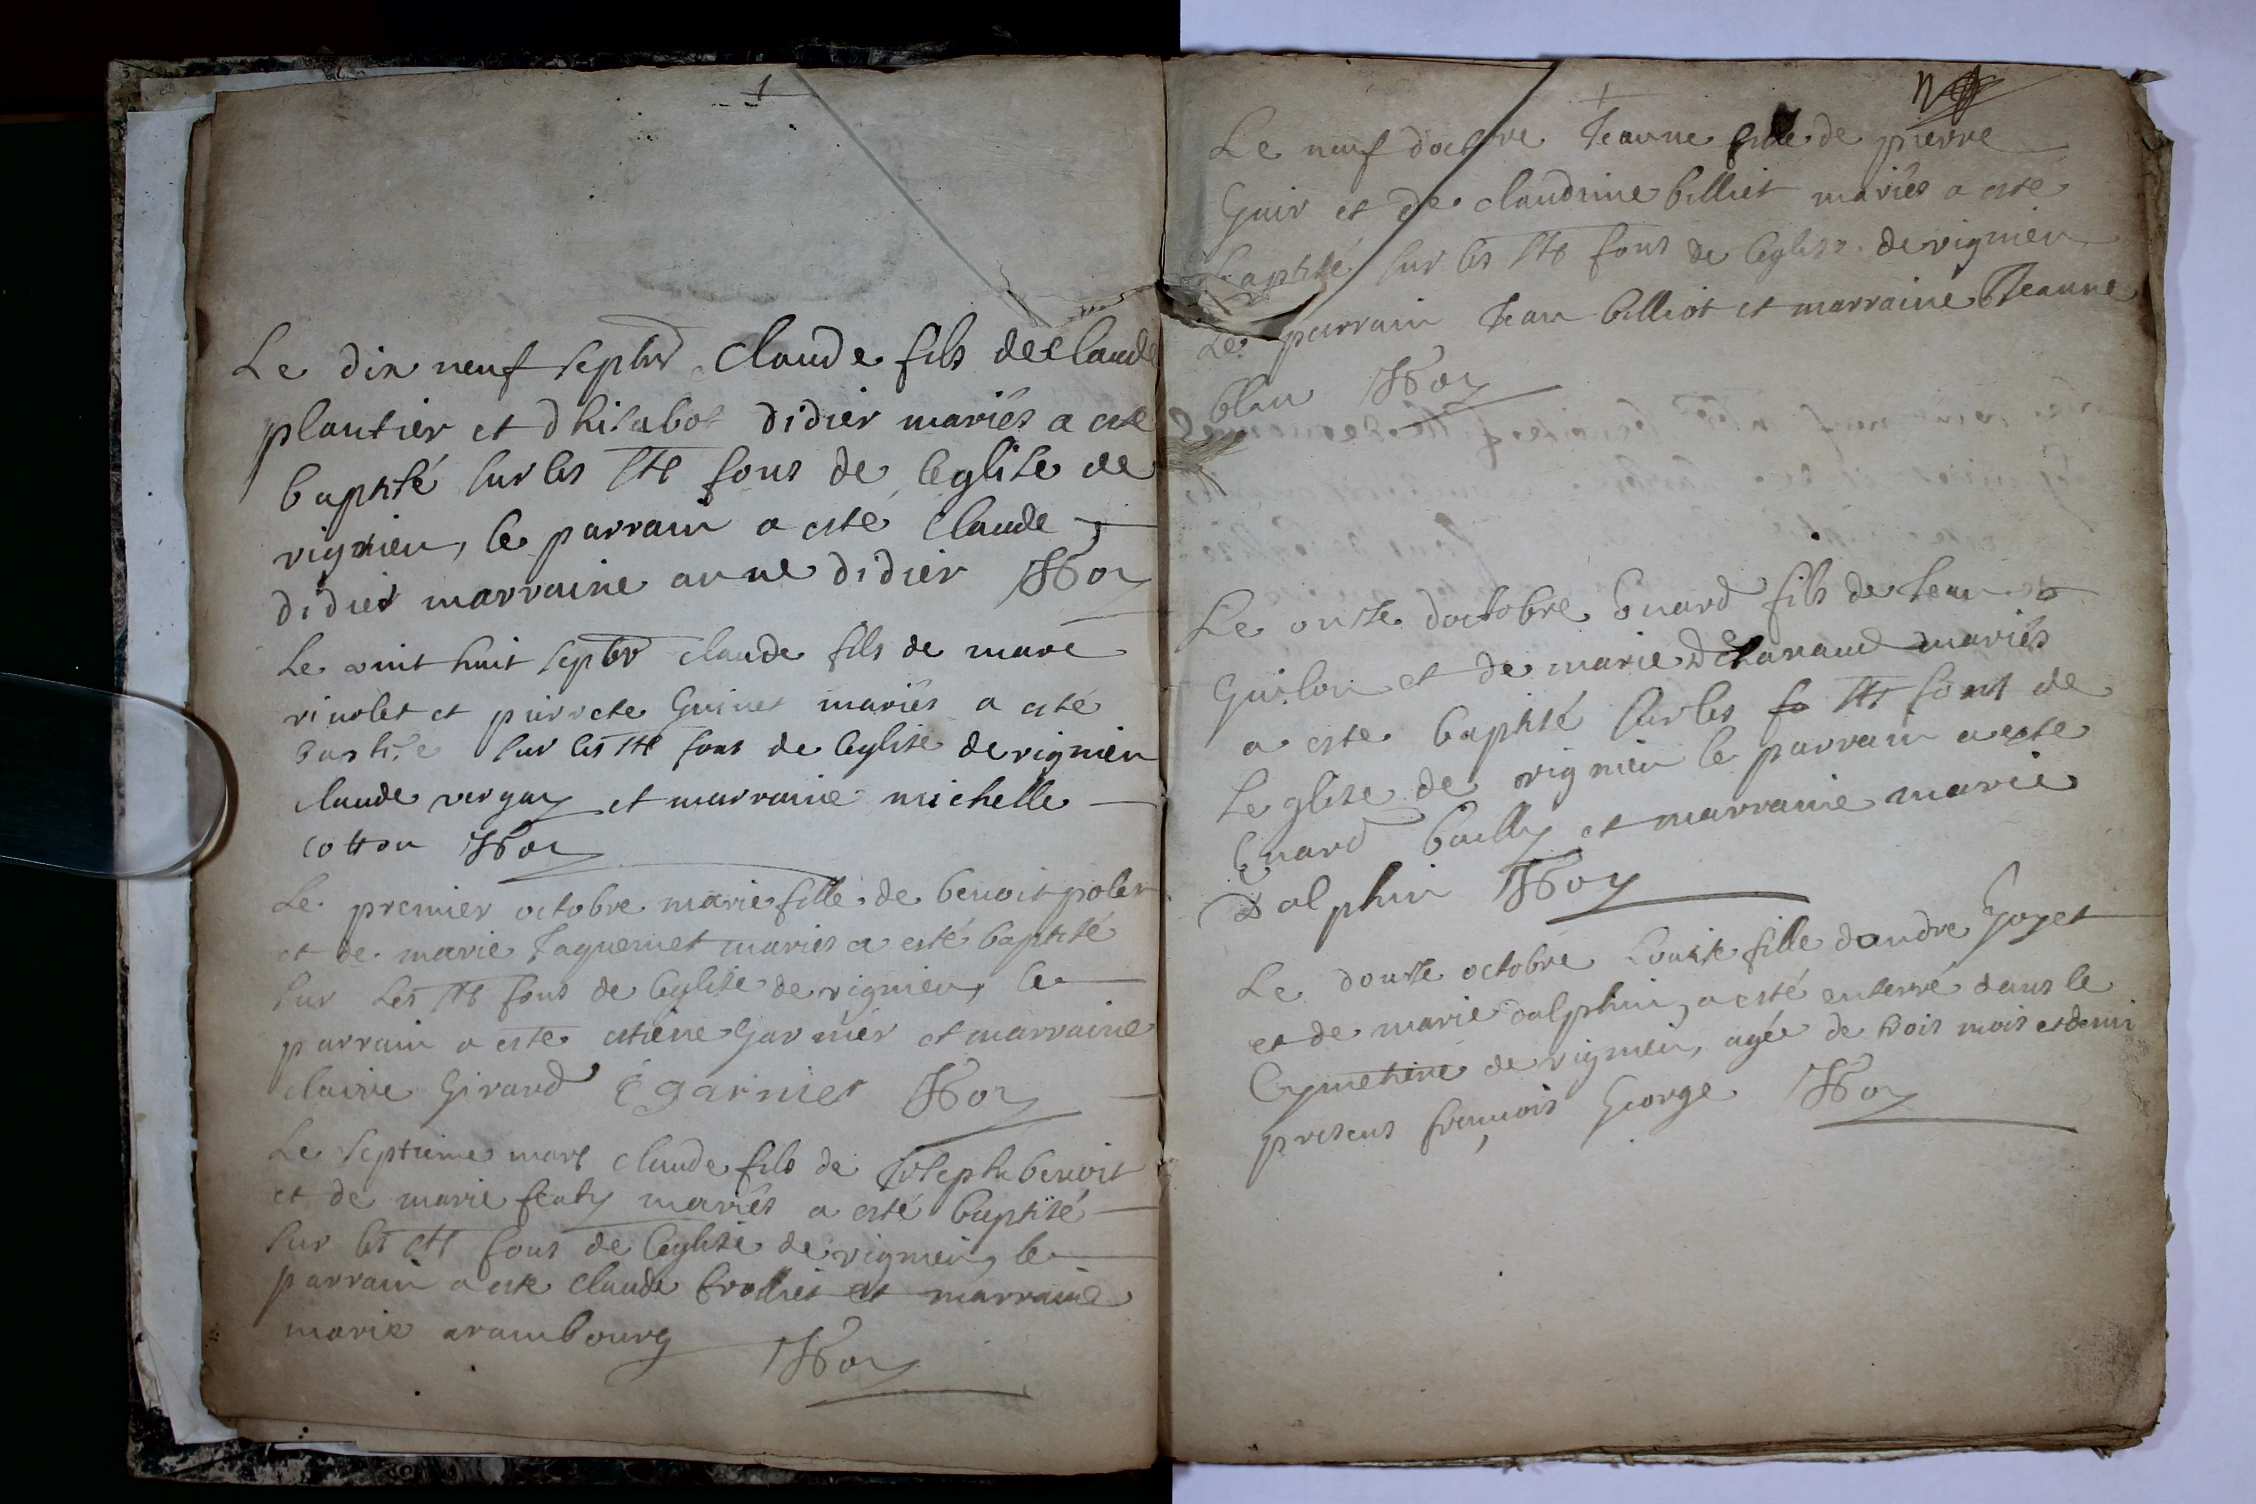 1
Le dix neuf septbr Claude fils de Claude
plantier et dhisabot didier mariés a esté
baptisé sur les Sts fons de leglise de
vignieu, le parrain a esté Claude
didier marraine anne didier Roy
Le vint huit septbr claude fils de marc
rivolet et pierrete Guinet mariés a esté
sur les Sts fons de leglise de vignieu
claude vergay et marraine michelle
cotton Roy
Le premier octobre marie fille de benoit
et de marie Jaquemet mariés a esté baptisé
sur les Sts fons de leglise de vignieu, le
parrain a esté etiene garnier et marraine
claire Girard E garnier Roy
Le septieme claude fils de Joseph benoit
et de marie mariés a esté baptisé
sur les Sts fons de leglise de vignieu, le
parrain a esté claude brolliet et marraine
marie arambourg Roy
Le neuf doctbre Jeanne fille de pierre
Guir et de claudine billiet mariés a esté
baptisé sur les Sts fons de leglise de vignieu
Le parrain Jean billiot et marraine Jeanne
blan Roy
Le onse doctobre fils de Jean
Guilon et de marie mariés
a este baptisé sur les fo Sts fons de
Leglise de vignieu le parrain a este
bailly et marraine marie
dalphin Roy
Le douse octobre Louise fille dandre Goyet
et de marie dalphin, a esté enterré dans le
Cymetiere de vignieu, agée de trois mois et demi
presens françois George Roy